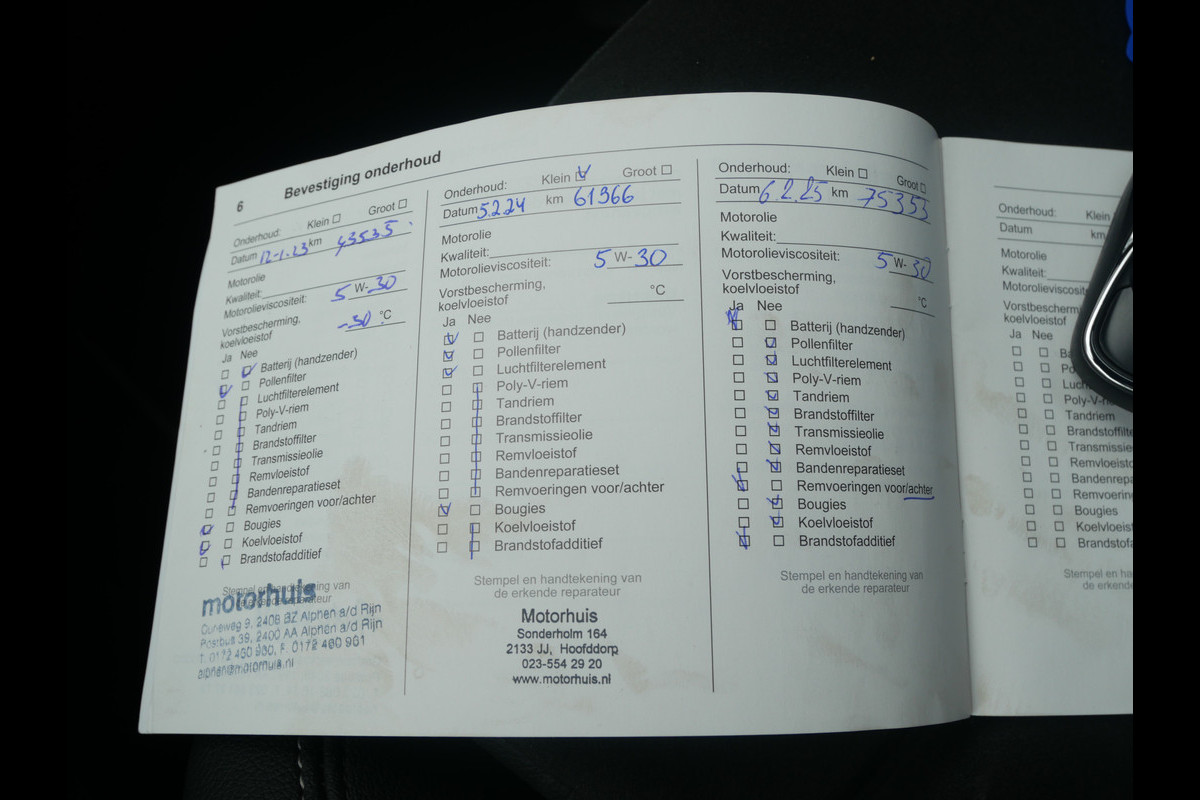 6 Bevestiging onderhoud
Onderhoud: Klein Groot
Datum 12-1-23 km 43535
Motorolie
Kwaliteit:
Motorolieviscositeit: 5 W- 30
Vorstbescherming,
koelvloeistof -30 °C
Ja Nee
Batterij (handzender)
Pollenfilter
Luchtfilterelement
Poly-V-riem
Tandriem
Brandstoffilter
Transmissieolie
Remvloeistof
Bandenreparatieset
Remvoeringen voor/achter
Bougies
Koelvloeistof
Brandstofadditief
Stempel en handtekening van
de erkende reparateur
motorhuis
2408 BZ Alphen a/d Rijn
Postbus 39, 2400 AA Alphen a/d Rijn
T. 0172 460 960, F. 0172 460 961
alphen@motorhuis.nl
Onderhoud: Klein Groot
Datum 5.2.24 km 61366
Motorolie
Kwaliteit:
Motorolieviscositeit: 5 W- 30
Vorstbescherming,
koelvloeistof °C
Ja Nee
Batterij (handzender)
Pollenfilter
Luchtfilterelement
Poly-V-riem
Tandriem
Brandstoffilter
Transmissieolie
Remvloeistof
Bandenreparatieset
Remvoeringen voor/achter
Bougies
Koelvloeistof
Brandstofadditief
Stempel en handtekening van
de erkende reparateur
Motorhuis
Sonderholm 164
2133 JJ, Hoofddorp
023-554 29 20
www.motorhuis.nl
Onderhoud: Klein Groot
Datum 6.2.25 km 75355
Motorolie
Kwaliteit:
Motorolieviscositeit: 5 W- 30
Vorstbescherming,
koelvloeistof °C
Ja Nee
Batterij (handzender)
Pollenfilter
Luchtfilterelement
Poly-V-riem
Tandriem
Brandstoffilter
Transmissieolie
Remvloeistof
Bandenreparatieset
Remvoeringen voor/achter
Bougies
Koelvloeistof
Brandstofadditief
Stempel en handtekening van
de erkende reparateur
Onderhoud: Klein
Datum km
Motorolie
Kwaliteit:
Motorolieviscosite
Vorstbescherming
koelvloeistof
Ja Nee
Ba
Po
Luch
Poly-V-r
Tandriem
Brandstoffilte
Transmissie
Remvloeisto
Bandenrepa
Remvoering
Bougies
Koelvloeisto
Brandstofa
Stempel en ha
de erken